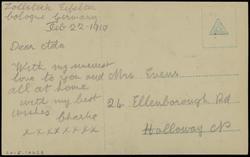 Cologne Germany
Feb 22-1919
Dear Ada
With my nearest
love to you and
all at home
with my best
wishes Charlie
x x x x x x x
Mrs. Evens
26 Ellenborough Rd
Holloway N